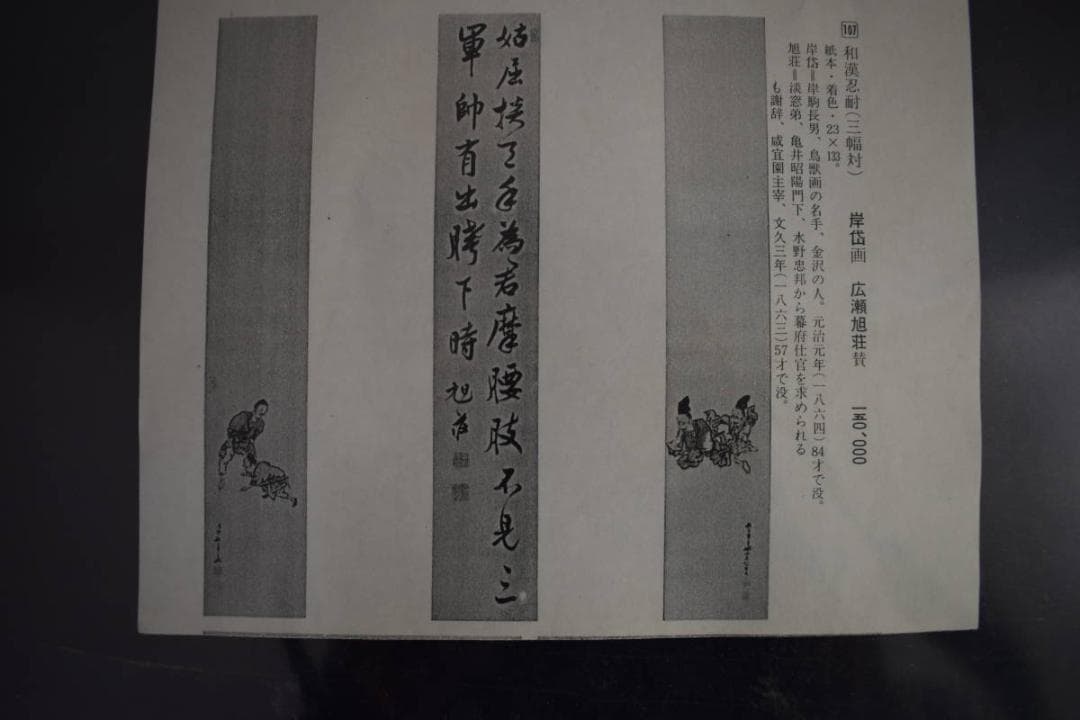 107 和漢忍耐(三幅対) 岸岱画 広瀬旭荘賛 一五〇、〇〇〇
紙本・着色・23×133。
岸岱=岸駒長男、鳥獣画の名手、金沢の人。元治元年(一八六四)84才で没。
旭荘=淡窓弟、亀井昭陽門下、水野忠邦から幕府仕官を求められる
も謝辞、咸宜園主宰、文久三年(一八六三)57才で没。
為君摩腰肢不見三
軍帥肯出胯下時 旭荘